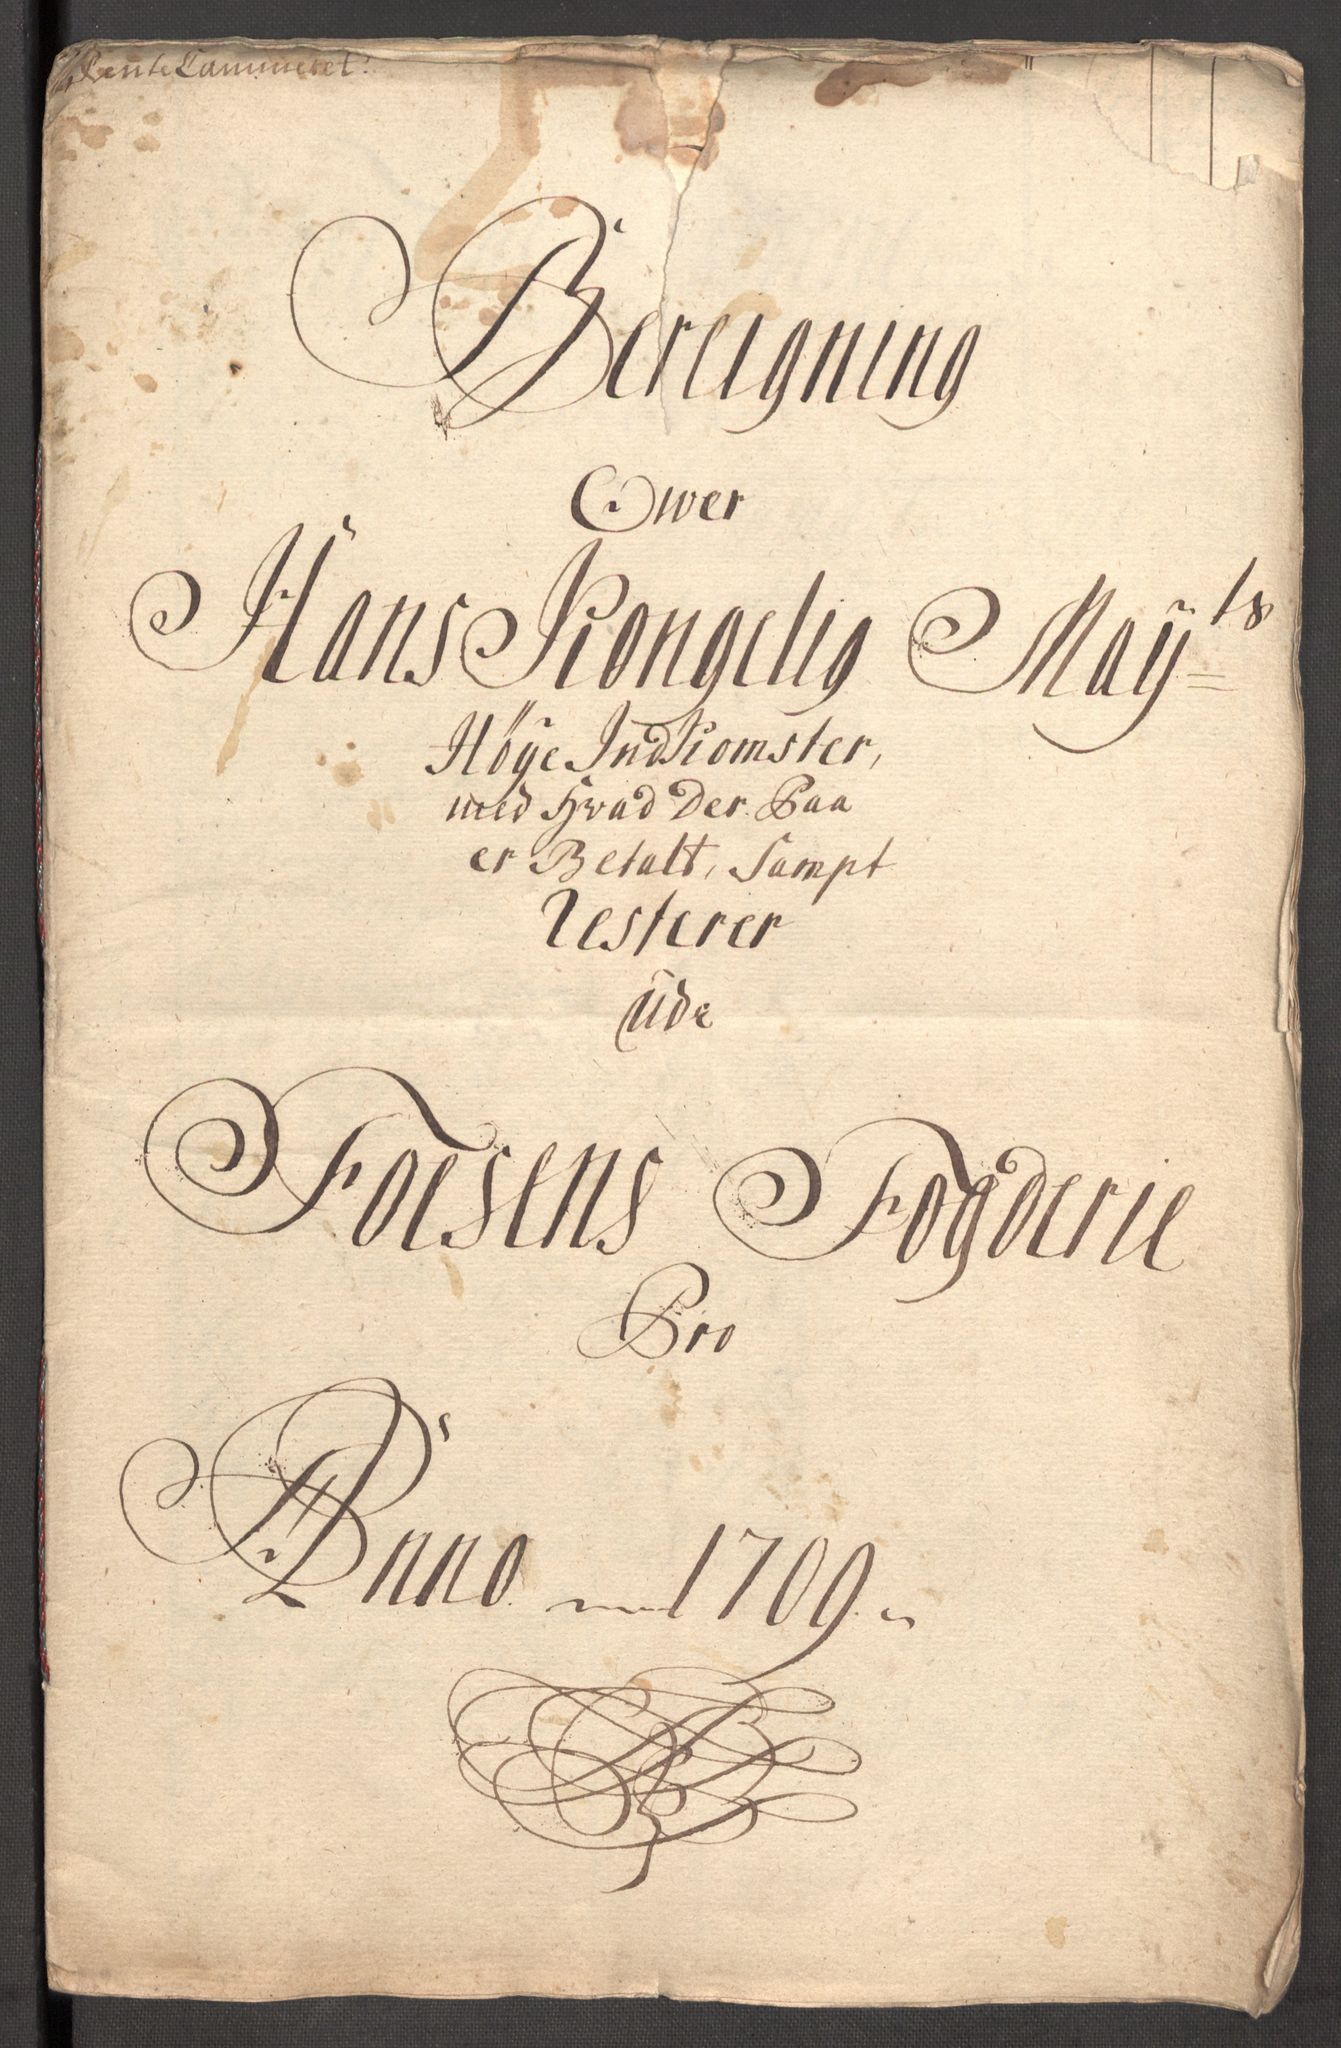 Rente Cammeret.
Bereigning
Ower
Hans Kongelig Mayts
Høye Indkomster,
med Hvad Der Paa
er Betalt, Sampt
Resterer
Ude
Foesens Fogderie
Pro
Anno 1709